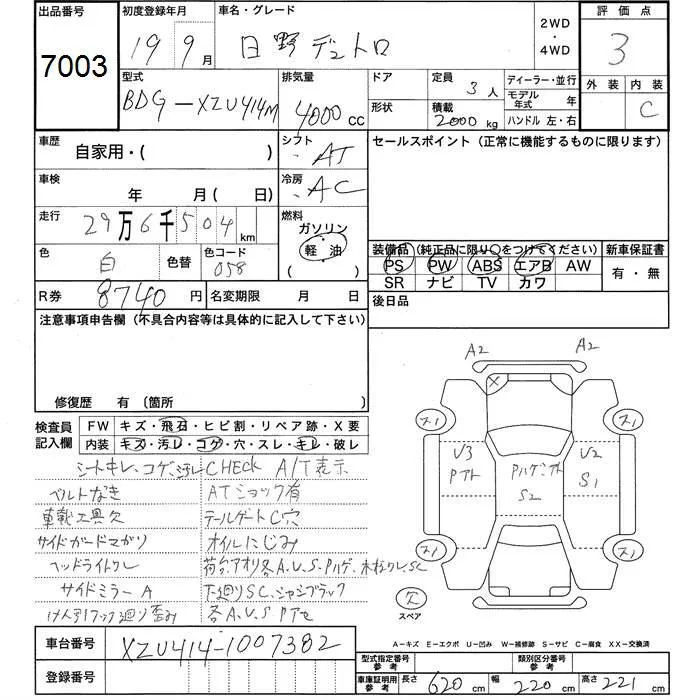 出品番号 初度登録年月 車名・グレード 2WD・4WD 評価点
7003 19 9月 日野デュトロ 3
外装 内装
C
型式 排気量 ドア 定員 3人 ディーラー・並行
BDG-XZU414M 4000cc 形状 積載 2000kg モデル年式 年
ハンドル 左・右
車歴 自家用・( ) シフト ・AT セールスポイント(正常に機能するものに限ります)
車検 年 月(日) 冷房 ・AC
走行 29万6千504km 燃料 ガソリン
軽油
( )
色 白 色替 色コード 058
装備品(純正品に限り○をつけてください) 新車保証書
PS PW ABS エアB AW 有・無
SR ナビ TV カワ
R券 8740円 名変期限 月 日 後日品
注意事項申告欄(不具合内容等は具体的に記入して下さい)
修復歴 有(箇所
検査員記入欄 FW キズ・飛石・ヒビ割・リペア跡・X要
内装 キズ・汚レ・コゲ・穴・スレ・キレ・破レ
シートキレ、コゲ、汚レ CHECK A/T表示
ベルトなき ATショック有
車載工具欠 テールゲートC穴
サイドガードマガリ オイルにじみ
ヘッドライトクレ 荷台アオリ各A.U.S.Pハゲ、木枠ワレSC
サイドミラーA 下廻りSC、シャシブラック
けん引フック廻り歪み 各A.U.S Pアセ
A2 A2
X
スレ スレ
U3 U2
S1
S2
スレ スレ
欠
スペア
A-キズ E-エクボ U-凹み W-補修跡 S-サビ C-腐食 XX-交換済
車台番号 XZU414-1007382
登録番号
型式指定番号参考 類別区分番号参考
車庫証明用参考 長さ 620cm 幅 220cm 高さ 221cm